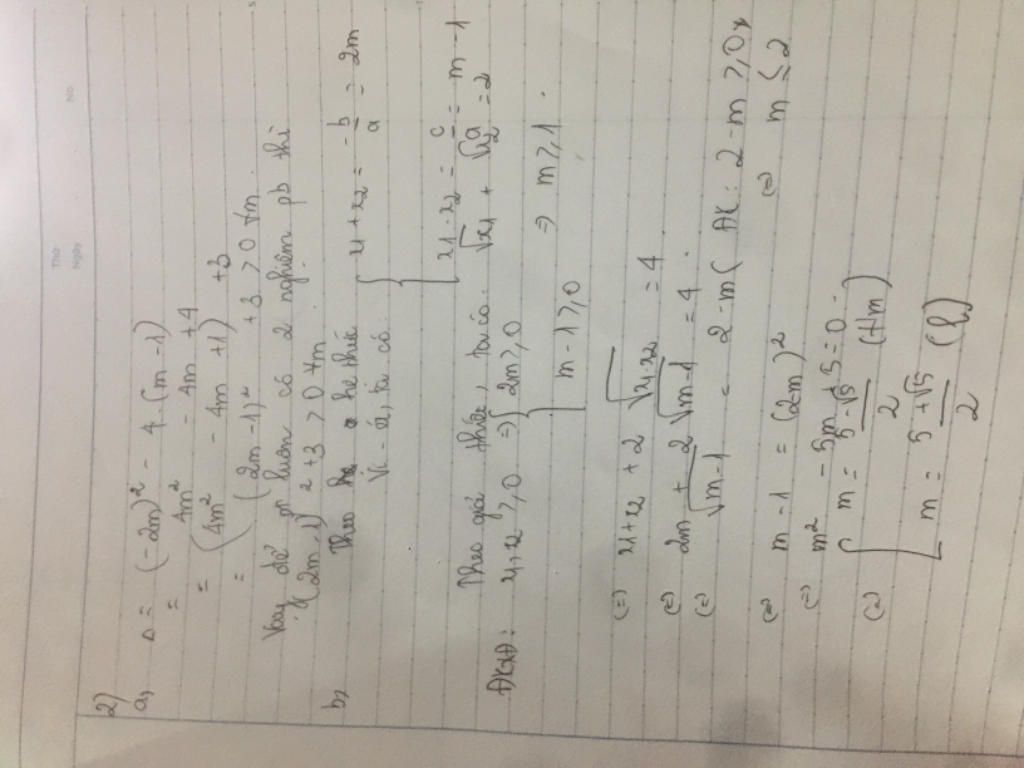 Thứ
Ngày
No.
2)
a, Δ = (-2m)² - 4.(m-1)
= 4m² - 4m + 4
= (4m² - 4m + 1) + 3
= (2m-1)² + 3 > 0 ∀m.
Vậy để pt luôn có 2 nghiệm pb thì
(2m-1)² + 3 > 0 ∀m
b, Theo hệ thức
Vi-ét, ta có: { x1 + x2 = -b/a = 2m
x1.x2 = c/a = m-1
Theo giả thiết, ta có: √x1 + √x2 = 2
ĐKXĐ: x1, x2 ≥ 0 => { 2m ≥ 0
m-1 ≥ 0 => m ≥ 1.
(=) x1 + x2 + 2√x1.x2 = 4
(=) 2m + 2√m-1 = 4.
(=) √m-1 = 2-m ( ĐK: 2-m ≥ 0
(=) m ≤ 2
(=) m-1 = (2-m)²
(=) m² - 5m + 5 = 0.
(=) [ m = 5-√5/2 (t/m)
m = 5+√5/2 (l)